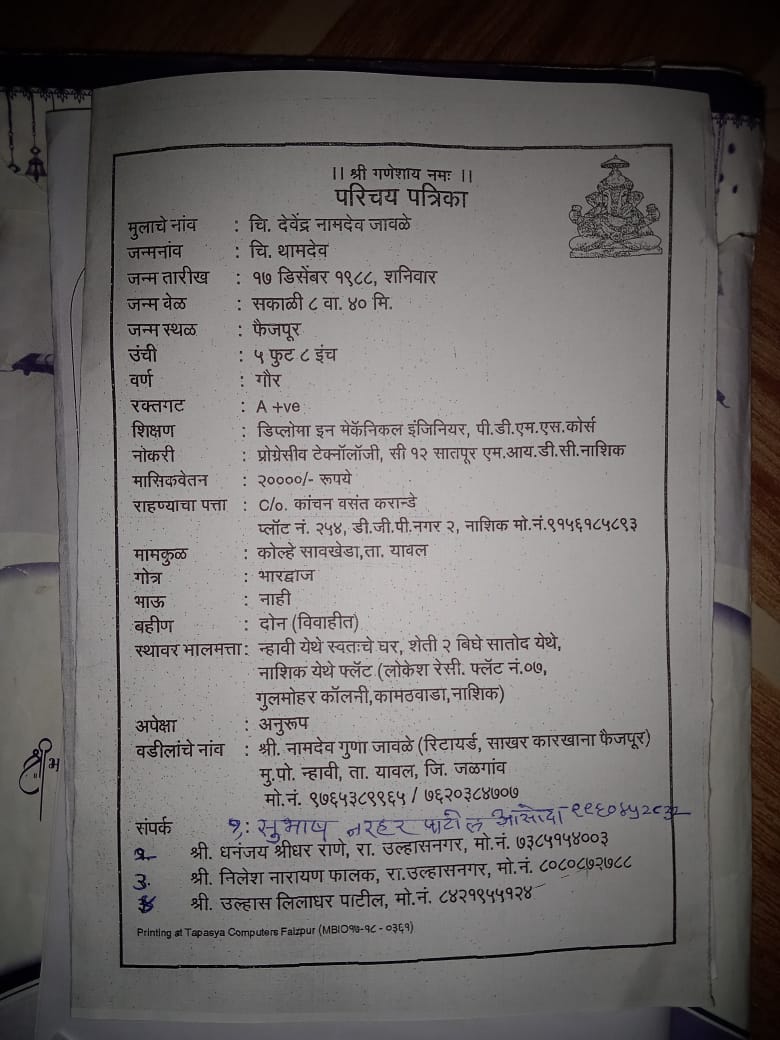 ।। श्री गणेशाय नमः ।।
परिचय पत्रिका
मुलाचे नांव : चि. देवेंद्र नामदेव जावळे
जन्मनांव : चि. थामदेव
जन्म तारीख : १७ डिसेंबर १९८८, शनिवार
जन्म वेळ : सकाळी ८ वा. ४० मि.
जन्म स्थळ : फैजपूर
उंची : ५ फुट ८ इंच
वर्ण : गौर
रक्तगट : A +ve
शिक्षण : डिप्लोमा इन मेकॅनिकल इंजिनियर, पी.डी.एम.एस.कोर्स
नोकरी : प्रोग्रेसीव टेक्नॉलॉजी, सी १२ सातपूर एम.आय.डी.सी.नाशिक
मासिकवेतन : २००००/- रूपये
राहण्याचा पत्ता : C/o. कांचन वसंत करान्डे
प्लॉट नं. २५४, डी.जी.पी.नगर २, नाशिक मो.नं.९१५६१८५८९३
मामकुळ : कोल्हे सावखेडा,ता. यावल
गोत्र : भारद्वाज
भाऊ : नाही
बहीण : दोन (विवाहीत)
स्थावर मालमत्ता : न्हावी येथे स्वतःचे घर, शेती २ विघे सातोद येथे,
नाशिक येथे फ्लॅट (लोकेश रेसी. फ्लॅट नं.०७,
गुलमोहर कॉलनी,कामठवाडा,नाशिक)
अपेक्षा : अनुरूप
वडीलांचे नांव : श्री. नामदेव गुणा जावळे (रिटायर्ड, साखर कारखाना फैजपूर)
मु.पो. न्हावी, ता. यावल, जि. जळगांव
मो.नं. ९७६५३८९९६५ / ७६२०३८४७०७
संपर्क १: सुभाष नरहर पाटील आसोदा
२ श्री. धनंजय श्रीधर राणे, रा. उल्हासनगर, मो.नं. ७३८५१५४००३
३. श्री. निलेश नारायण फालक, रा.उल्हासनगर, मो.नं. ८०८०८७२७८८
४ श्री. उल्हास लिलाधर पाटील, मो.नं. ८४२१९५५१२४
Printing at Tapasya Computers Faizpur (MBIO१७-१८ - ०३६१)
श्री